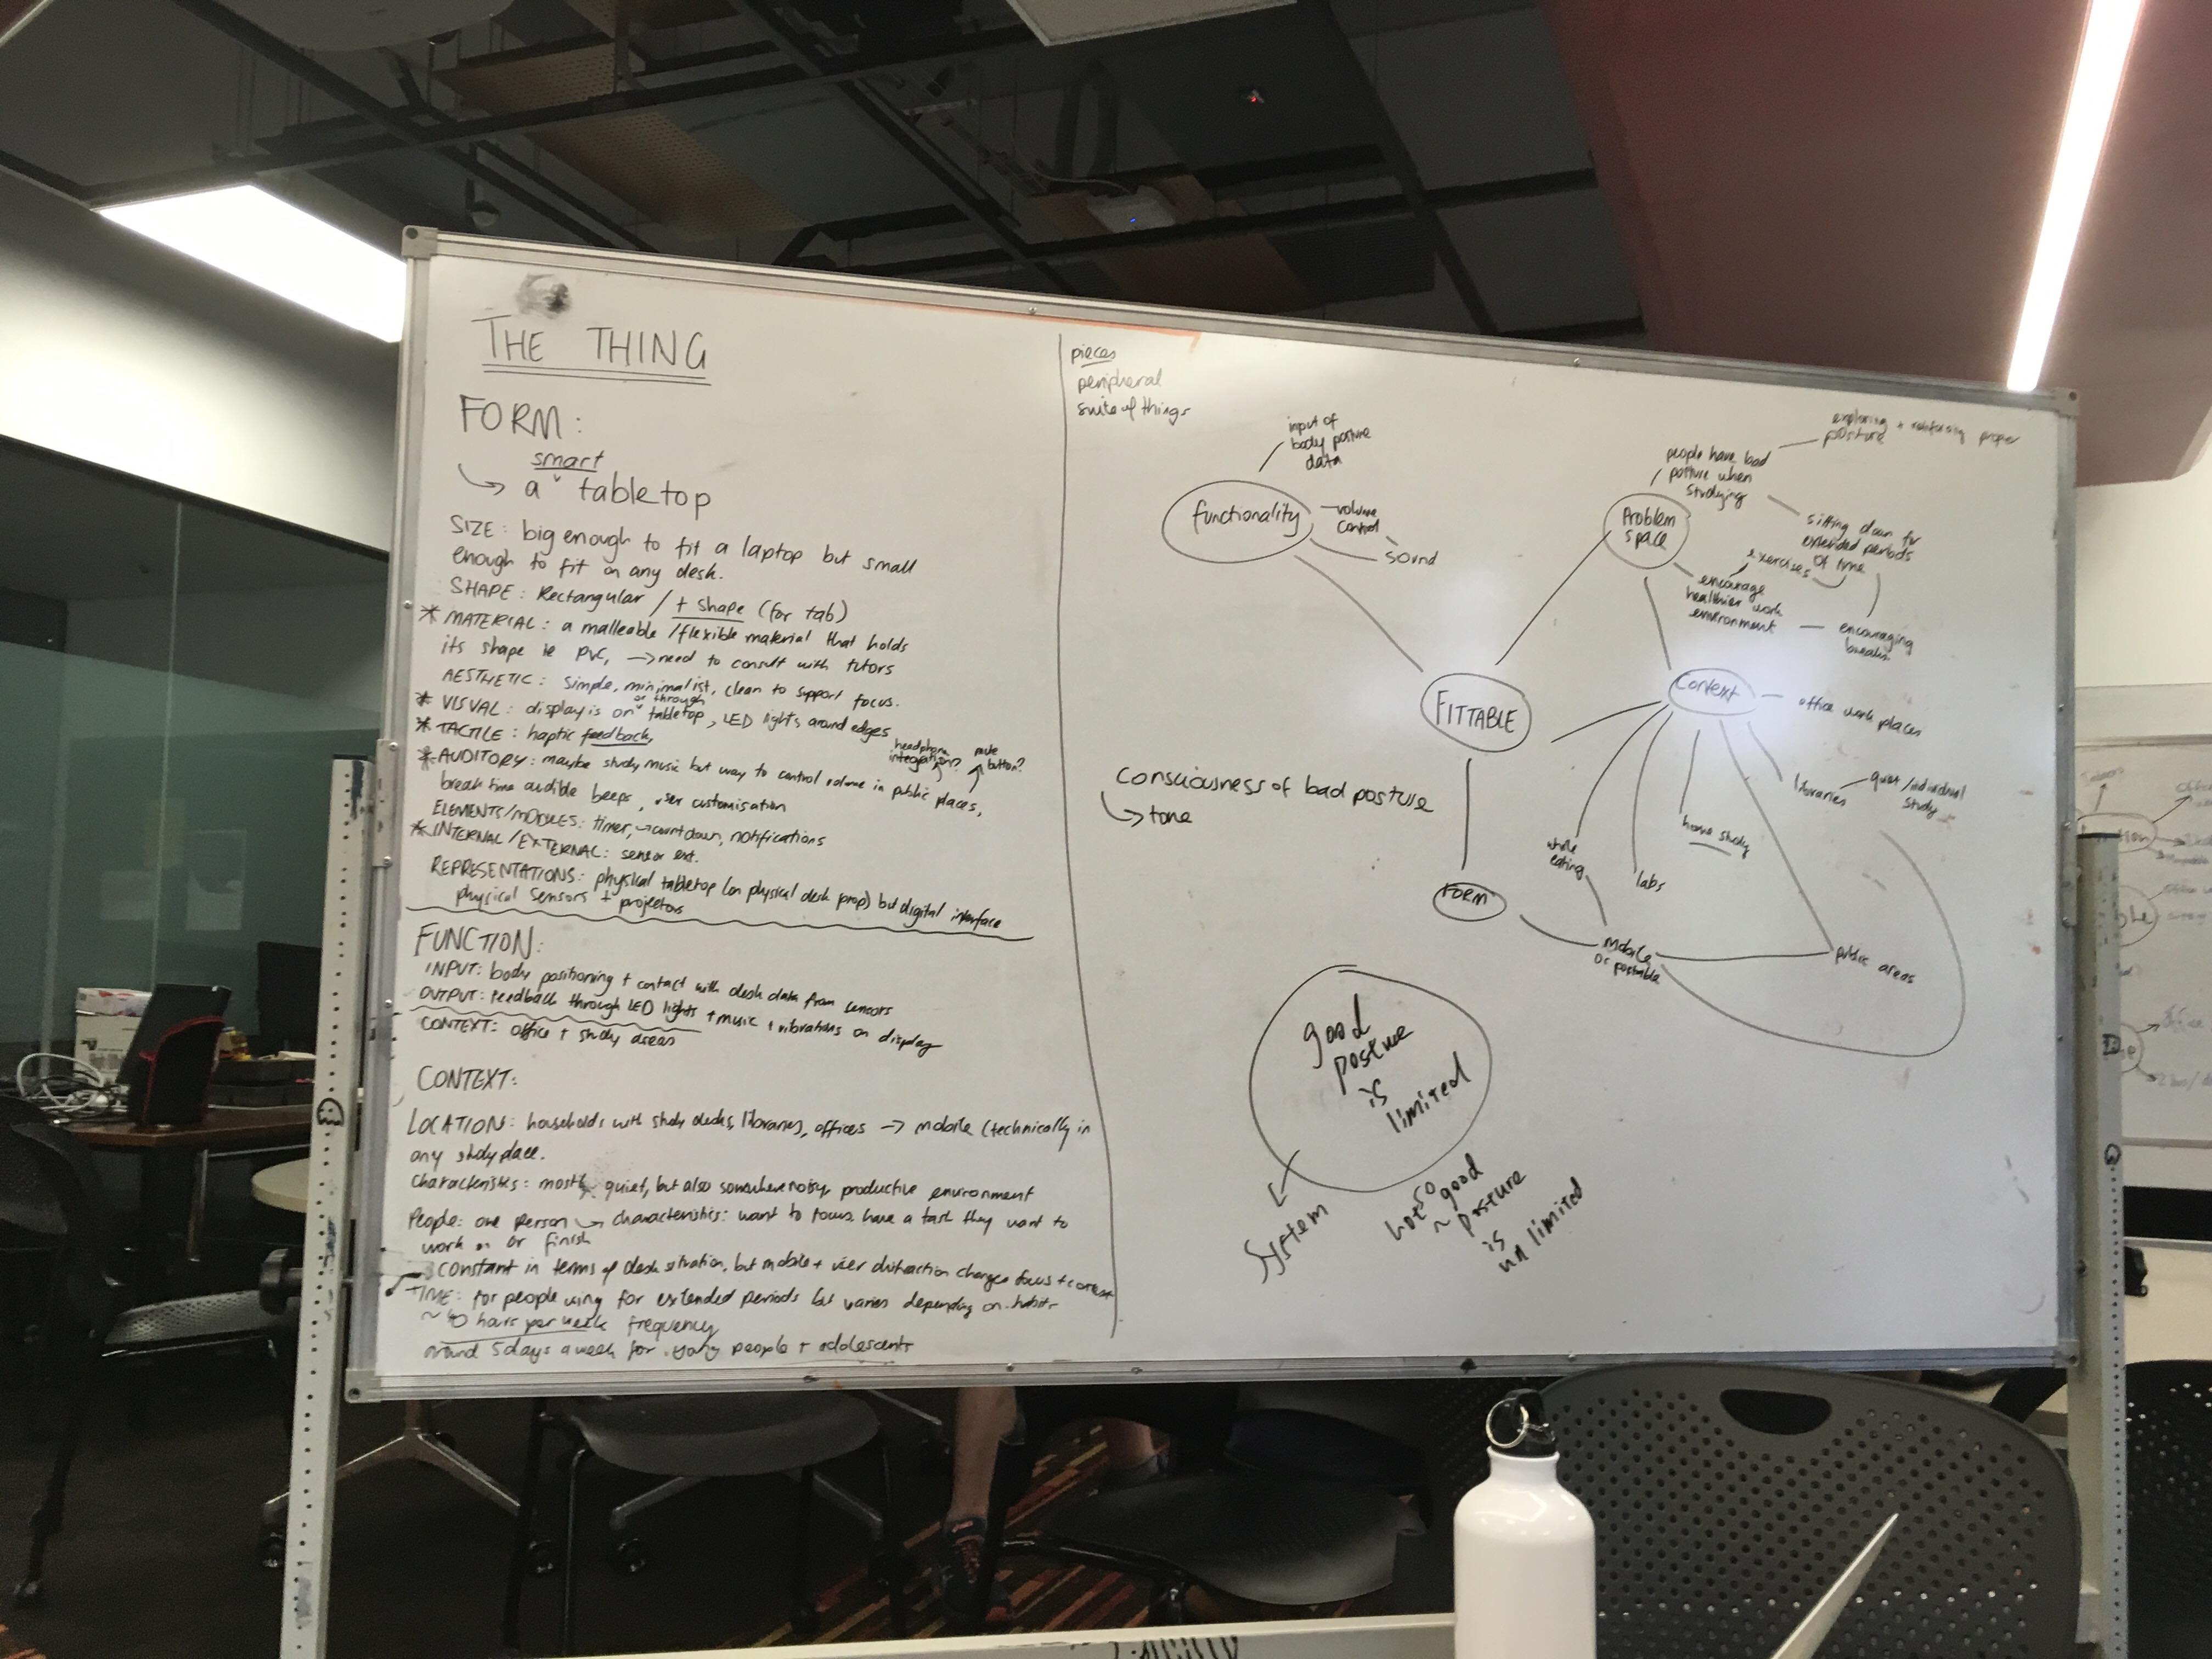 THE THING
FORM:
smart
↳ a ˅ tabletop
SIZE: big enough to fit a laptop but small
enough to fit on any desk.
SHAPE: Rectangular / + shape (for tab)
* MATERIAL: a malleable /flexible material that holds
its shape ie PVC, → need to consult with tutors
AESTHETIC: simple, minimalist, clean to support focus.
or through
* VISUAL: display is on ˅ tabletop, LED lights around edges
* TACTILE: haptic feedback,
headphone integration?
mute button?
* AUDITORY: maybe study music but way to control volume in public places,
break time audible beeps, user customisation
ELEMENTS/MODULES: timer, → countdown, notifications
* INTERNAL/EXTERNAL: sensor ext.
REPRESENTATIONS: physical tabletop (on physical desk prop) but digital interface
physical sensors + projectors
FUNCTION:
INPUT: body positioning + contact with desk data from sensors
OUTPUT: feedback through LED lights + music + vibrations on display
CONTEXT: office + study areas
CONTEXT:
LOCATION: households with study desks, libraries, offices → mobile (technically in
any study place.
Characteristics: mostly quiet, but also somewhere noisy, productive environment
People: one person → characteristics: want to focus, have a task they want to
work on or finish
constant in terms of desk situation, but mobile + user distraction changes focus + context
TIME: for people using for extended periods but varies depending on habits
~ 40 hours per week frequency
around 5 days a week for young people + adolescents
pieces
peripheral
suite of things
input of
body posture
data
functionality
volume
control
sound
Problem
space
people have bad
posture when
studying
exploring + reinforcing proper
posture
sitting down for
extended periods
of time
exercises
encourage
healthier work
environment
encouraging
breaks
FITTABLE
Context
office work places
libraries
quiet/individual
study
home study
labs
while
eating
public areas
mobile
or portable
FORM
Consciousness of bad posture
↳ tone
good
posture
is
limited
System
not so good
~ posture
is
unlimited